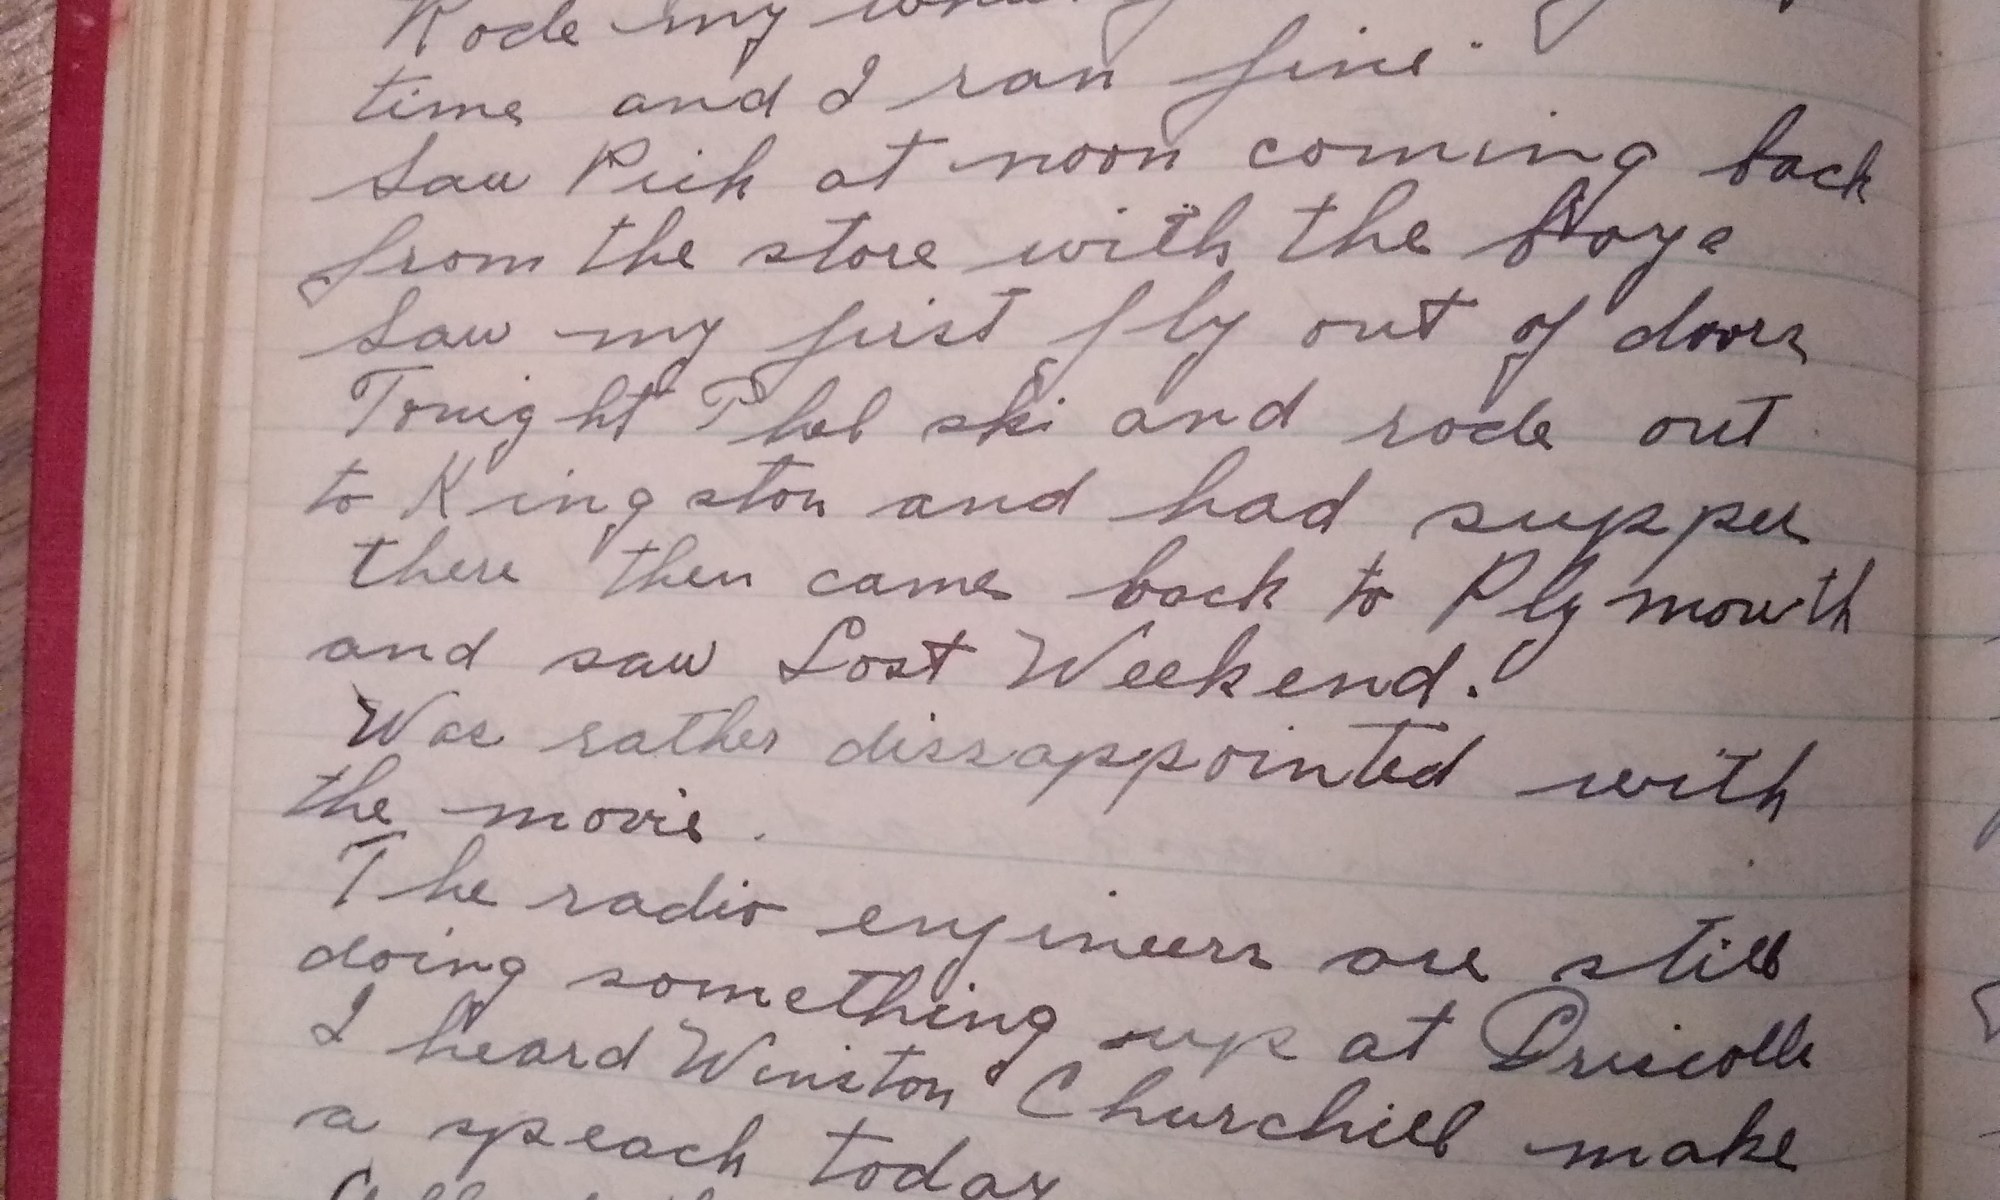 Rode my
time and I ran fine.
Saw Pick at noon coming back
from the store with the boys
Saw my first fly out of doors
Tonight ski and rode out
to Kingston and had supper
there then came back to Plymouth
and saw Lost Weekend.
Was rather dissappointed with
the movie.
The radio engineers are still
doing something up at Driscolls
I heard Winston Churchill make
a speach today